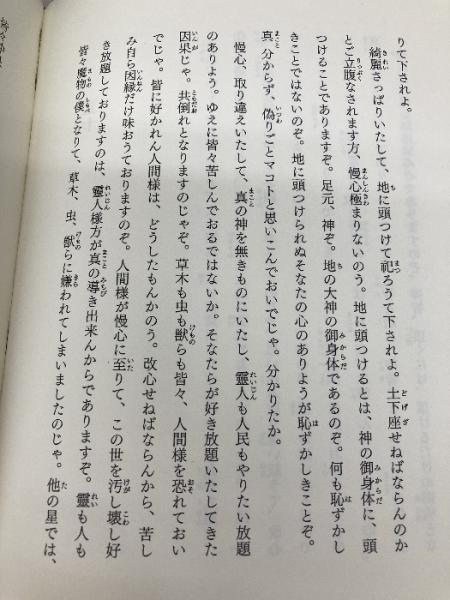 りて下されよ。
綺麗さっぱりいたして、地に頭つけて祀ろうて下されよ。土下座せねばならんのか
とご立腹なされます方、慢心極まりないのう。地に頭つけるとは、神の御身体に、頭
つけることでありますぞ。足元、神ぞ。地の大神の御身体であるのぞ。何も恥ずかし
きことではないのぞ。地に頭つけられぬそなたの心のありようが恥ずかしきことぞ。
真分からず、偽りごとマコトと思いこんでおいでじゃ。分かりたか。
慢心、取り違えいたして、真の神を無きものにいたし、靈人も人民もやりたい放題
のありよう。ゆえに皆々苦しんでおるではないか。そなたらが好き放題いたしてきた
因果じゃ。共倒れとなりますのじゃぞ。草木も虫も獣らも皆々、人間様を恐れておい
でじゃ。皆に好かれん人間様は、どうしたもんかのう。改心せねばならんから、苦し
み自ら因縁だけ味おうておりますのぞ。人間様が慢心に至りて、この世を汚し壊し好
き放題しておりますのは、靈人様方が真の導き出来んからでありますぞ。靈も人も
皆々魔物の僕となりて、草木、虫、獣らに嫌われてしまいましたのじゃ。他の星では、